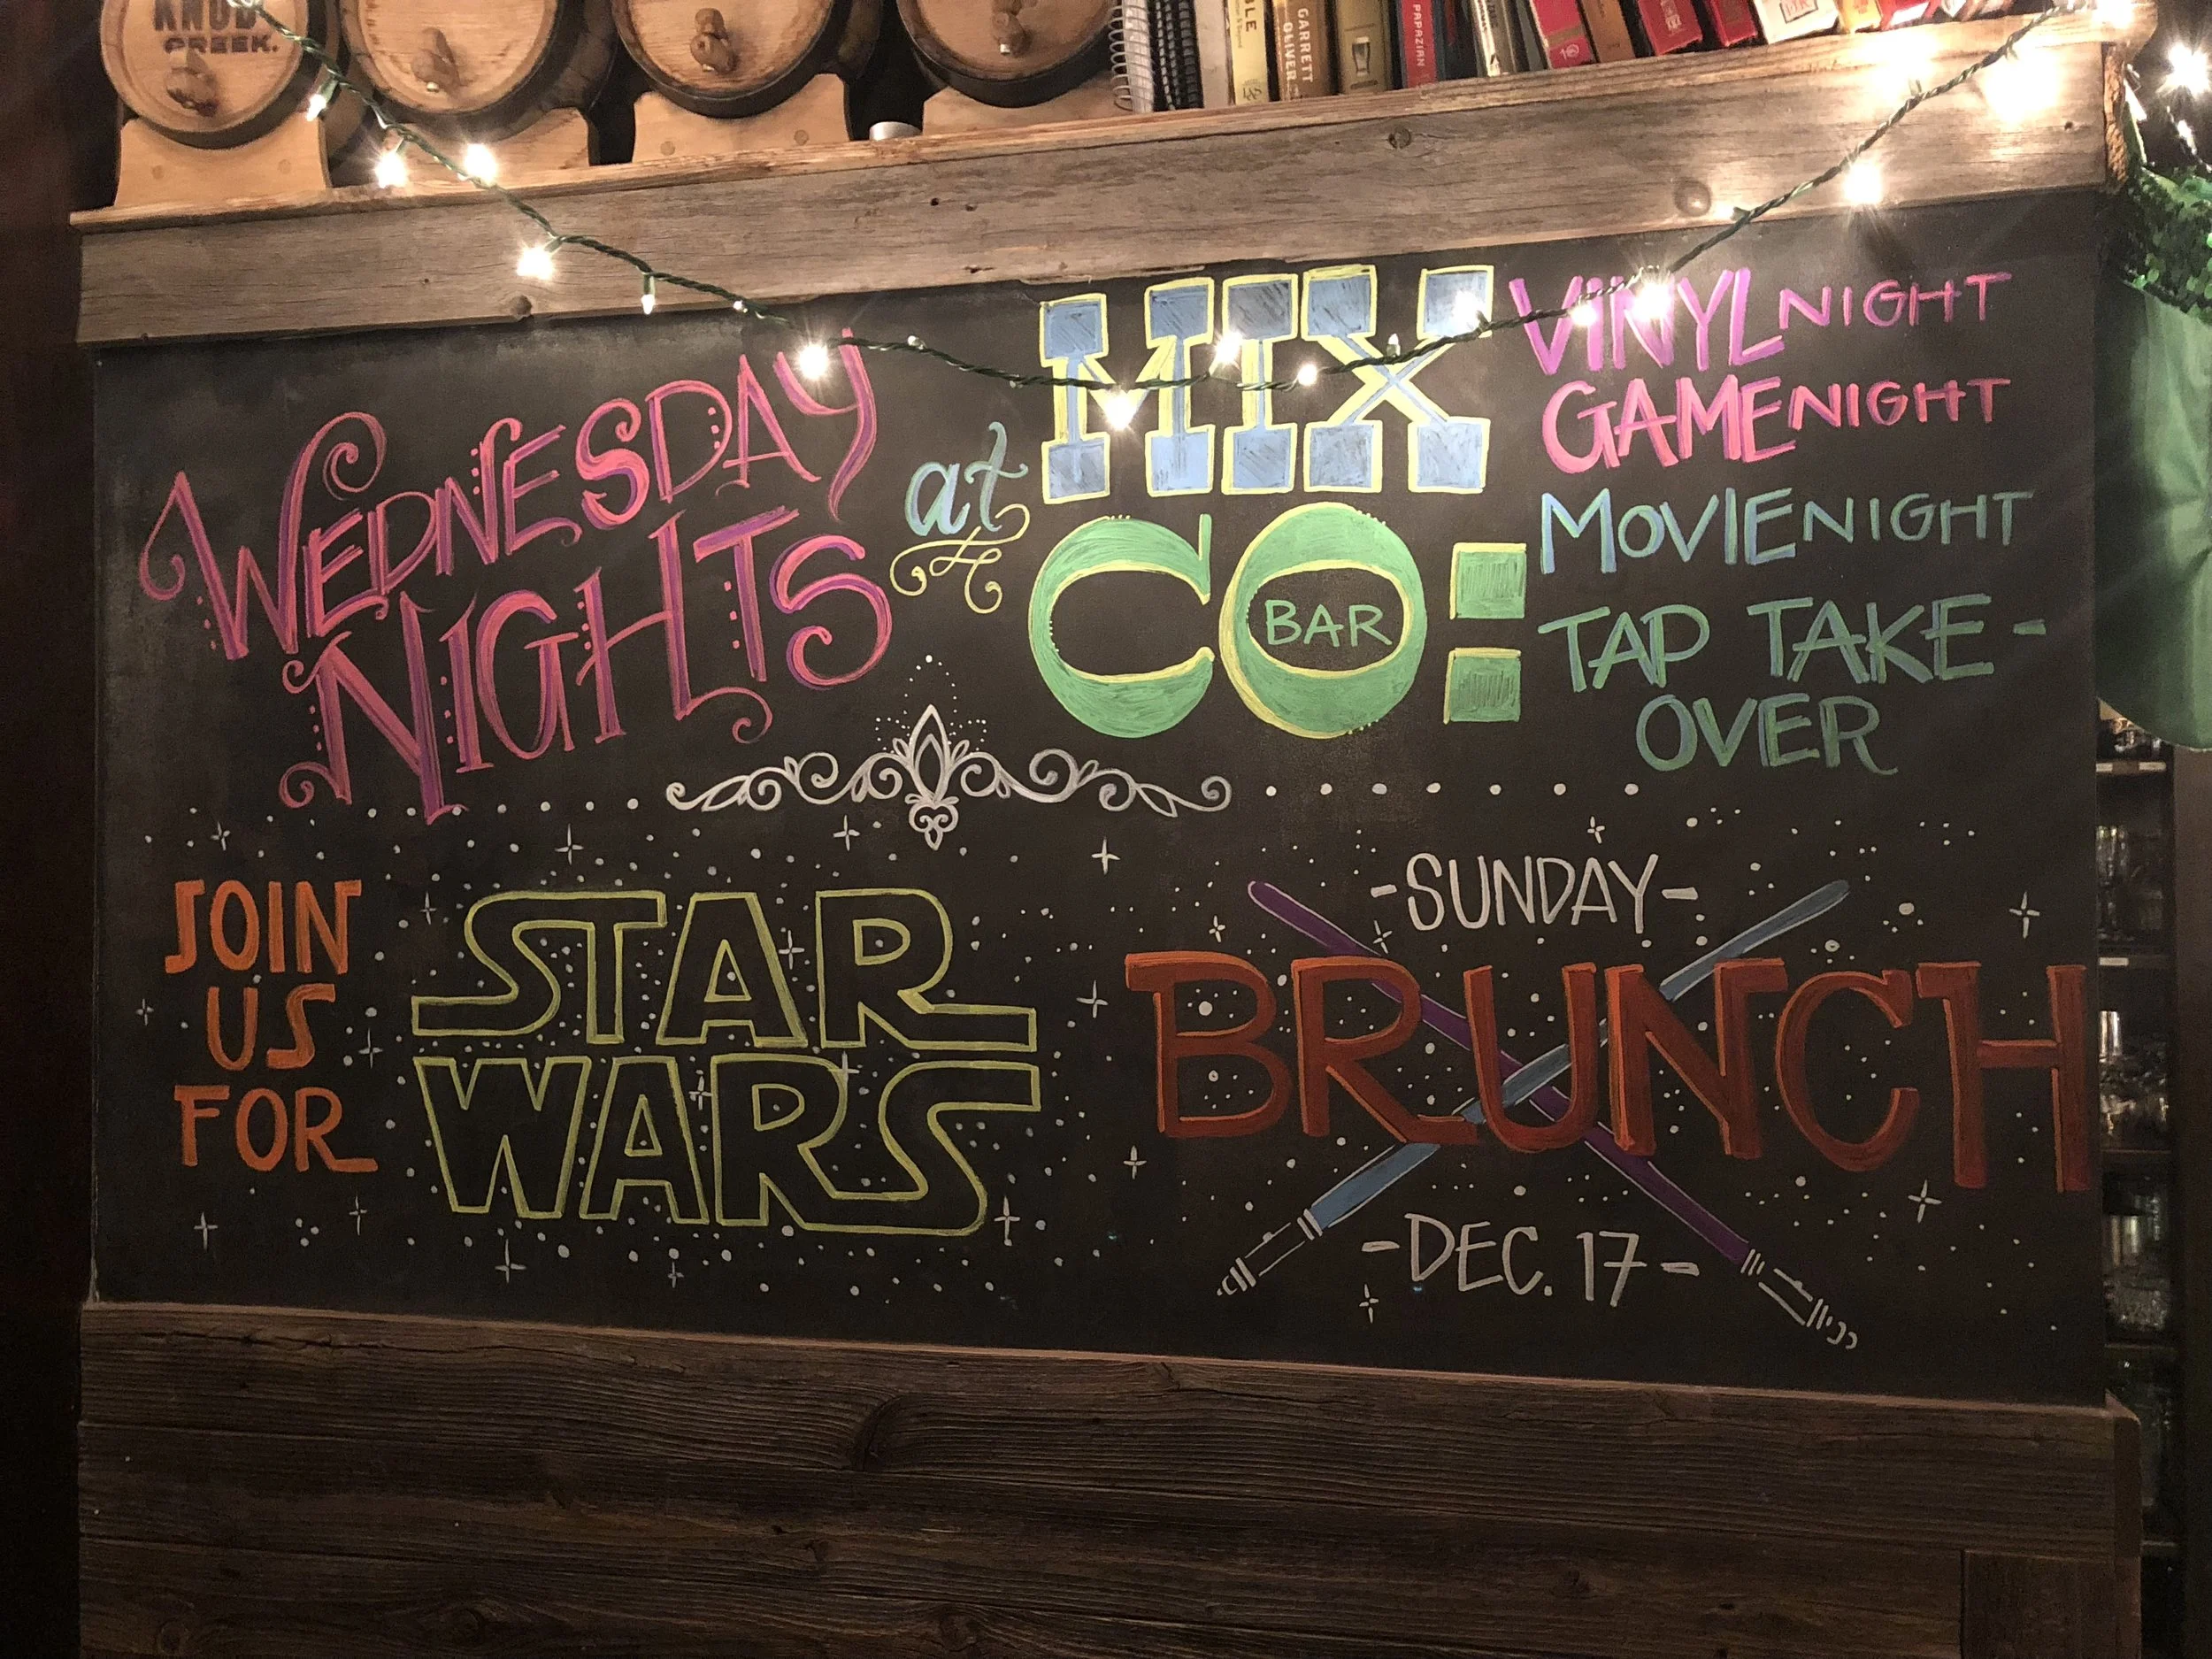 KNOB
CREEK.
GARRETT
OLIVER
PAPAZIAN
WEDNESDAY
NIGHTS
at
MIX
CO:
BAR
VINYL NIGHT
GAME NIGHT
MOVIE NIGHT
TAP TAKE-
OVER
JOIN
US
FOR
STAR
WARS
-SUNDAY-
BRUNCH
-DEC. 17-